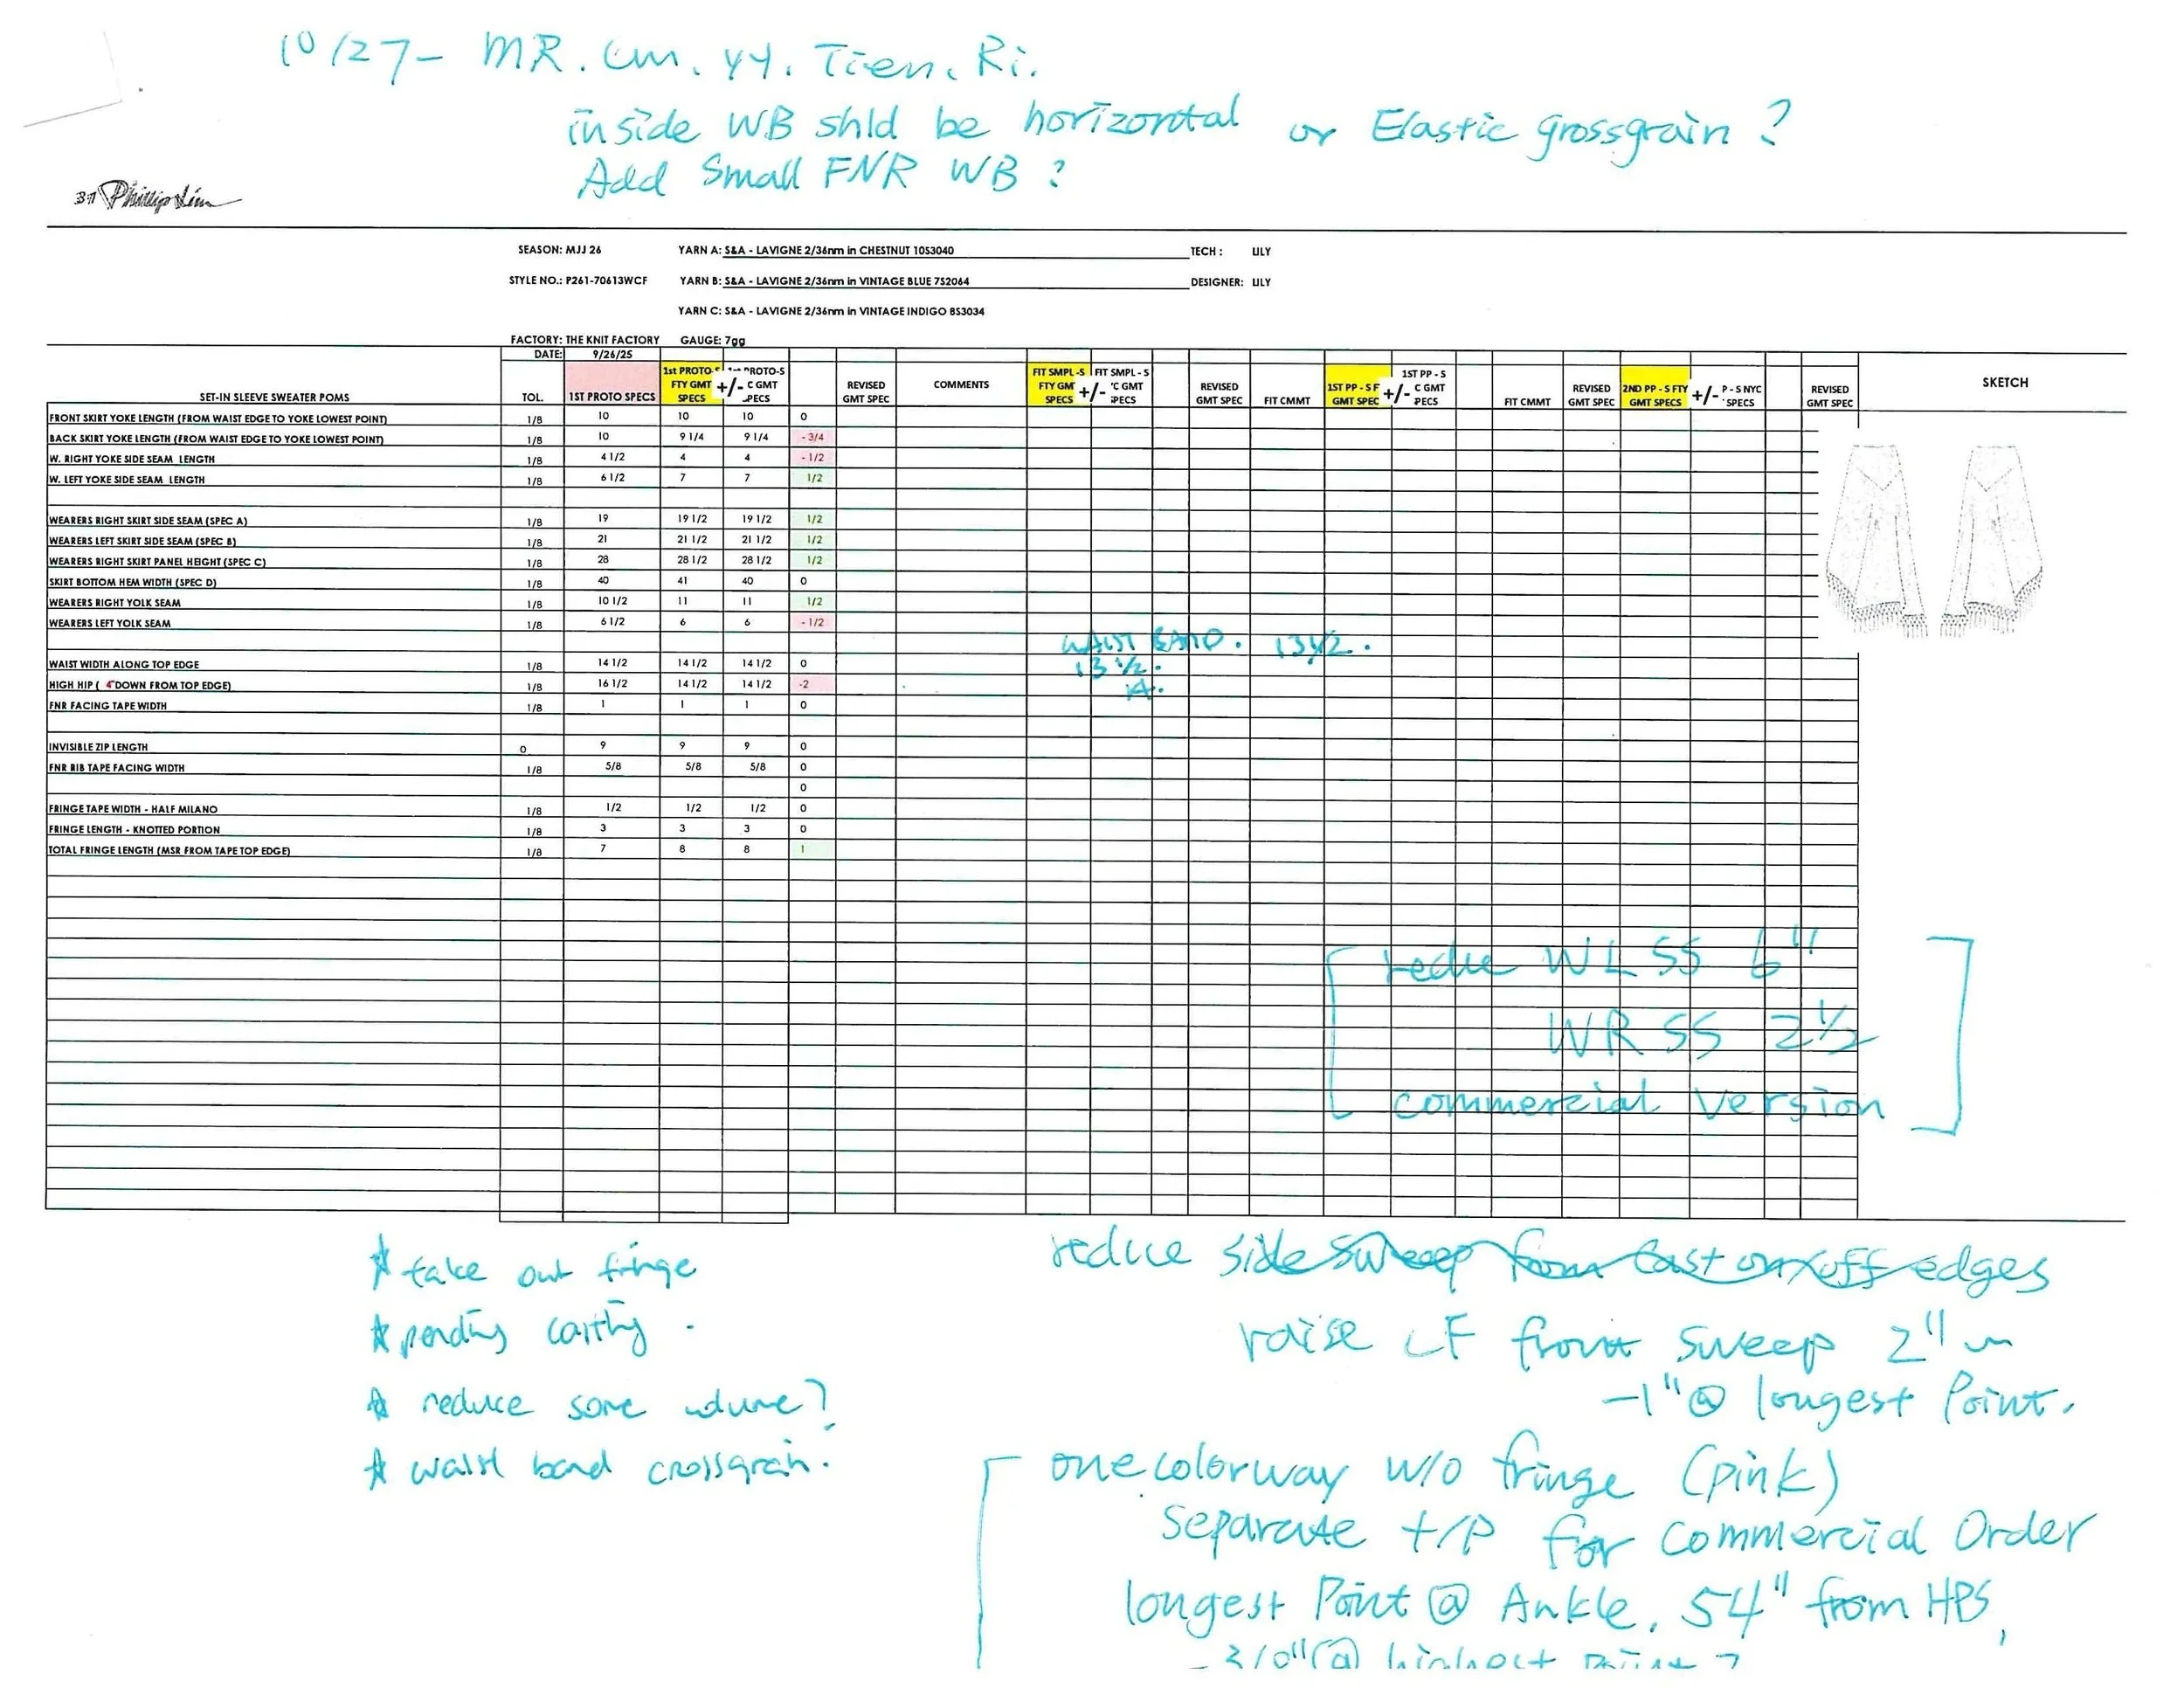 10/27- MR. Cm. yy. Tien. Ri.
inside WB shld be horizontal or Elastic grossgrain?
Add Small FNR WB ?
3.1 Phillip Lim
SEASON: MJJ 26 YARN A: S&A - LAVIGNE 2/36nm in CHESTNUT 10S3040 TECH : LILY
STYLE NO.: P261-70613WCF YARN B: S&A - LAVIGNE 2/36nm in VINTAGE BLUE 7S2064 DESIGNER: LILY
YARN C: S&A - LAVIGNE 2/36nm in VINTAGE INDIGO 8S3034
FACTORY: THE KNIT FACTORY GAUGE: 7gg
DATE: 9/26/25
SET-IN SLEEVE SWEATER POMS TOL. 1ST PROTO SPECS 1st PROTO-S FTY GMT SPECS +/- PROTO-S C GMT PECS REVISED GMT SPEC COMMENTS FIT SMPL -S FTY GM SPECS +/- FIT SMPL - S 'C GMT PECS REVISED GMT SPEC FIT CMMT 1ST PP - S F GMT SPEC +/- 1ST PP - S C GMT PECS FIT CMMT REVISED GMT SPEC 2ND PP - S FTY GMT SPECS +/- P - S NYC SPECS REVISED GMT SPEC SKETCH
FRONT SKIRT YOKE LENGTH (FROM WAIST EDGE TO YOKE LOWEST POINT) 1/8 10 10 10 0
BACK SKIRT YOKE LENGTH (FROM WAIST EDGE TO YOKE LOWEST POINT) 1/8 10 9 1/4 9 1/4 - 3/4
W. RIGHT YOKE SIDE SEAM LENGTH 1/8 4 1/2 4 4 - 1/2
W. LEFT YOKE SIDE SEAM LENGTH 1/8 6 1/2 7 7 1/2
WEARERS RIGHT SKIRT SIDE SEAM (SPEC A) 1/8 19 19 1/2 19 1/2 1/2
WEARERS LEFT SKIRT SIDE SEAM (SPEC B) 1/8 21 21 1/2 21 1/2 1/2
WEARERS RIGHT SKIRT PANEL HEIGHT (SPEC C) 1/8 28 28 1/2 28 1/2 1/2
SKIRT BOTTOM HEM WIDTH (SPEC D) 1/8 40 41 40 0
WEARERS RIGHT YOLK SEAM 1/8 10 1/2 11 11 1/2
WEARERS LEFT YOLK SEAM 1/8 6 1/2 6 6 - 1/2
WAIST BAND. 13 1/2.
WAIST WIDTH ALONG TOP EDGE 1/8 14 1/2 14 1/2 14 1/2 0 13 1/2.
HIGH HIP ( DOWN FROM TOP EDGE) 1/8 16 1/2 14 1/2 14 1/2 -2 14.
FNR FACING TAPE WIDTH 1/8 1 1 1 0
INVISIBLE ZIP LENGTH 0 9 9 9 0
FNR RIB TAPE FACING WIDTH 1/8 5/8 5/8 5/8 0
0
FRINGE TAPE WIDTH - HALF MILANO 1/8 1/2 1/2 1/2 0
FRINGE LENGTH - KNOTTED PORTION 1/8 3 3 3 0
TOTAL FRINGE LENGTH (MSR FROM TAPE TOP EDGE) 1/8 7 8 8 1
WLSS 6"
WR SS 2 1/2
commercial version
take out fringe
pending
reduce some volume?
waist band crossgrain.
reduce side sweep from cast on/off edges
raise CF front sweep 2"
-1" @ longest Point.
one colorway w/o fringe (pink)
Separate t/p for Commercial Order
longest Point @ Ankle, 54" from HPS,
@ highest Point ?